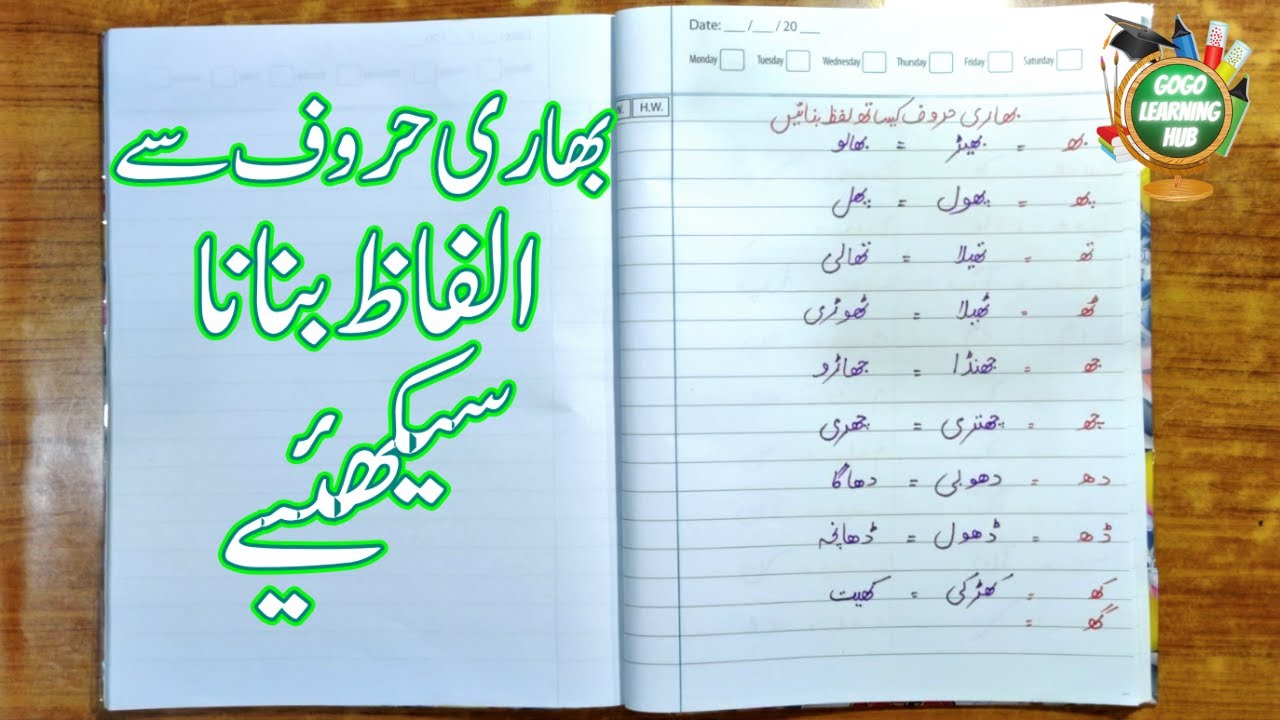 بھاری حروف سے
الفاظ بنانا
سیکھئیے
Date: ___ /___ / 20 ___
Monday Tuesday Wednesday Thursday Friday Saturday
W. H.W.
بھاری حروف کیساتھ لفظ بنائیں
بھ = بھیڑ = بھالو
پھ = پھول = پھل
تھ = تھیلا = تھالی
ٹھ = ٹھیلا = ٹھوڑی
جھ = جھنڈا = جھاڑو
چھ = چھتری = چھری
دھ = دھوبی = دھاگا
ڈھ = ڈھول = ڈھانچہ
کھ = کھڑکی = کھیت
گھ =
GOGO
LEARNING
HUB